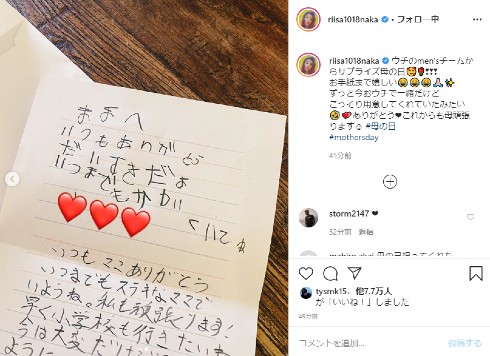 ままへ
いつもありがとう
だいすきだよ
いつまでも
かわいくいてね
いつもママありがとう
いつまでもステキなママで
いようね。私も頑張ります!
早く小学校も行きたいな
今は大変だけど
ように
riisa1018naka • フォロー中
riisa1018naka ウチのmen'sチームか
らサプライズ母の日
お手紙まで嬉しい
ずっと今おウチで一緒だけど
こっそり用意してくれていたみたい
ありがとう❤これからも母頑張
りまする #母の日
#mothersday
45分前
storm2147 ❤
52分前 返信
tysmk15、他7.7万人
が「いいね!」しました
45分前
コメントを追加...
投稿する